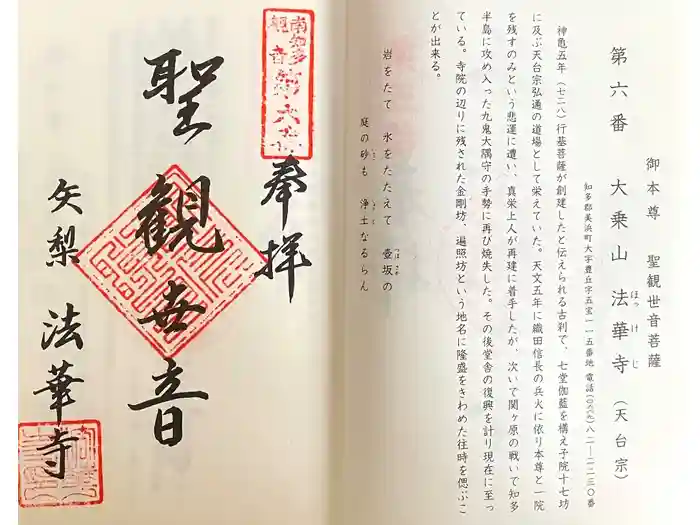 御本尊　聖観世音菩薩
第六番　大乗山　法華寺（天台宗）
ほっけじ
知多郡美浜町大字豊丘字五宝一一五番地　電話（〇五六九）八二―二二三〇番
神亀五年（七二八）行基菩薩が創建したと伝えられる古刹で、七堂伽藍を構え子院十七坊
に及ぶ天台宗弘通の道場として栄えていた。天文五年に織田信長の兵火に依り本尊と一院
を残すのみという悲運に遭い、真栄上人が再建に着手したが、次いで関ヶ原の戦いで知多
半島に攻め入った九鬼大隅守の手勢に再び焼失した。その後堂舎の復興を計り現在に至っ
ている。寺院の辺りに残された金剛坊、遍照坊という地名に隆盛をきわめた往時を偲ぶこ
とが出来る。
岩をたて　水をたたえて　壺坂の
つぼさか
庭の砂も　浄土なるらん
南知多
観音第六番
奉拝
聖観世音
矢梨　法華寺